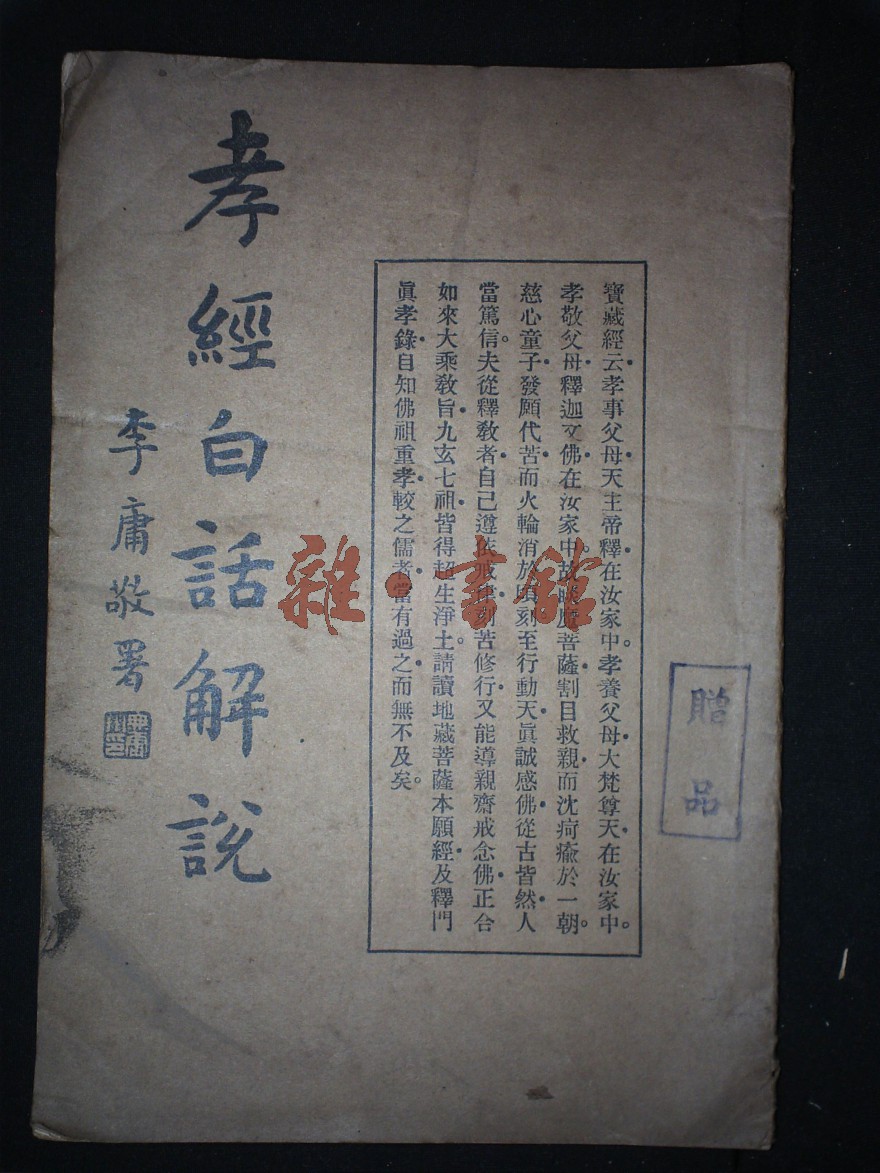 贈品
寶藏經云•孝事父母•天主帝釋•在汝家中。孝養父母•大梵尊天•在汝家中。
孝敬父母•釋迦文佛•在汝家中。故菩薩割目救親•而沈疴瘉於一朝。
慈心童子•發願代苦•而火輪消於頃刻•至行動天•眞誠感佛•從古皆然•人
當篤信。夫從釋敎者•自己遵依戒律•刻苦修行•又能導親齋戒念佛•正合
如來大乘敎旨•九玄七祖•皆得超生淨土。請讀地藏菩薩本願經•及釋門
眞孝錄•自知佛祖重孝•較之儒者•當有過之而無不及矣。
孝經白話解說
李庸敬署
雜·書館